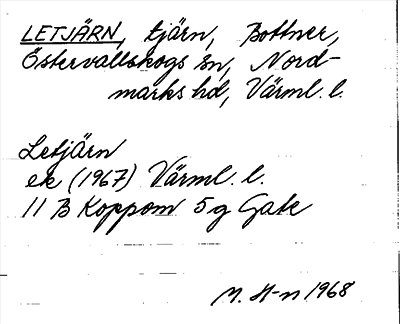 LETJÄRN, tjärn, Bottner,
Östervallskogs sn, Nord-
marks hd, Värml. l.
Letjärn
ek (1967) Värml. l.
11 B Koppom 5 g Gate
M. H-n 1968